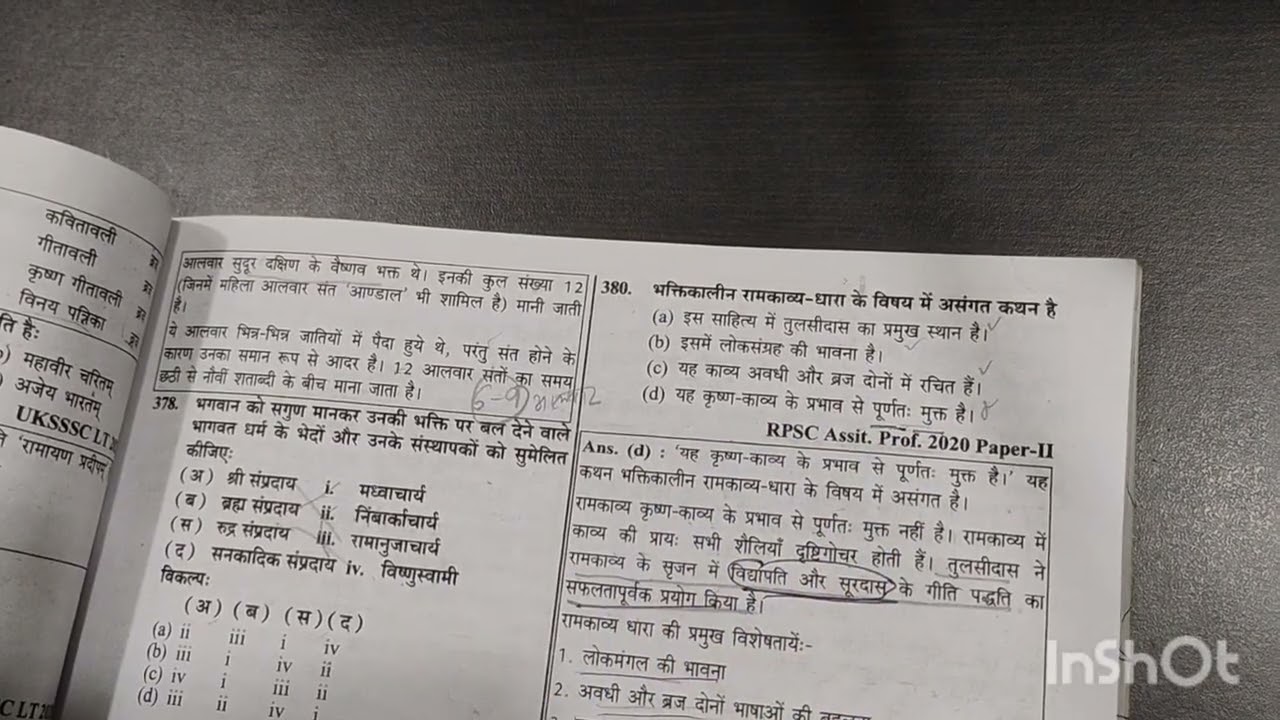 कवितावली
गीतावली
कृष्ण गीतावली
विनय पत्रिका
ति है:
महावीर चरितम्
अजेय भारतम्
UKSSSC LT
'रामायण प्रदीपम्
C LT
आलवार सुदूर दक्षिण के वैष्णव भक्त थे। इनकी कुल संख्या 12
(जिनमें महिला आलवार संत 'आण्डाल' भी शामिल है) मानी जाती
है।
ये आलवार भिन्न-भिन्न जातियों में पैदा हुये थे, परंतु संत होने के
कारण उनका समान रूप से आदर है। 12 आलवार संतों का समय
छठी से नौवीं शताब्दी के बीच माना जाता है।
6-9
378. भगवान को सगुण मानकर उनकी भक्ति पर बल देने वाले
भागवत धर्म के भेदों और उनके संस्थापकों को सुमेलित
कीजिए:
(अ) श्री संप्रदाय i. मध्वाचार्य
(ब) ब्रह्म संप्रदाय ii. निंबार्काचार्य
(स) रुद्र संप्रदाय iii. रामानुजाचार्य
(द) सनकादिक संप्रदाय iv. विष्णुस्वामी
विकल्प:
(अ) (ब) (स) (द)
(a) ii iii i iv
(b) iii i iv ii
(c) iv i iii ii
(d) iii ii iv i
380. भक्तिकालीन रामकाव्य-धारा के विषय में असंगत कथन है
(a) इस साहित्य में तुलसीदास का प्रमुख स्थान है।
(b) इसमें लोकसंग्रह की भावना है।
(c) यह काव्य अवधी और ब्रज दोनों में रचित हैं।
(d) यह कृष्ण-काव्य के प्रभाव से पूर्णतः मुक्त है।
RPSC Assit. Prof. 2020 Paper-II
Ans. (d) : 'यह कृष्ण-काव्य के प्रभाव से पूर्णतः मुक्त है।' यह
कथन भक्तिकालीन रामकाव्य-धारा के विषय में असंगत है।
रामकाव्य कृष्ण-काव्य के प्रभाव से पूर्णतः मुक्त नहीं है। रामकाव्य में
काव्य की प्रायः सभी शैलियाँ दृष्टिगोचर होती हैं। तुलसीदास ने
रामकाव्य के सृजन में विद्यापति और सूरदास के गीति पद्धति का
सफलतापूर्वक प्रयोग किया है।
रामकाव्य धारा की प्रमुख विशेषतायेंः-
1. लोकमंगल की भावना
2. अवधी और ब्रज दोनों भाषाओं की
InShOt